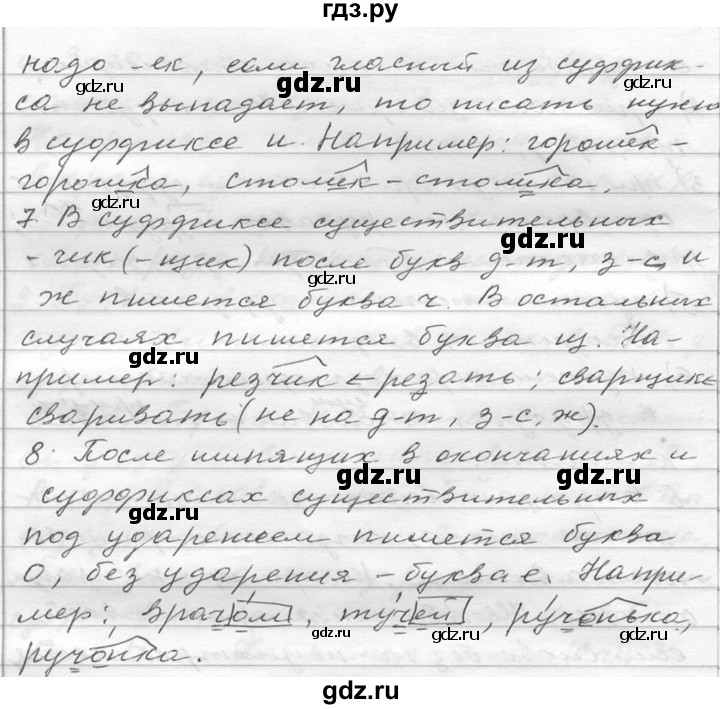 гдз.ру
надо -ек, если гласный из суффик-
са не выпадает, то писать нужно
в суффиксе и. Например: горошек-
горошка, столик-столика.
7. В суффиксе существительных
-чик(-щик) после букв д-т, з-с, и
ж пишется буква ч. В остальных
случаях пишется буква щ. На-
пример: резчик ← резать; сварщик ←
сваривать (не на д-т, з-с, ж).
8. После шипящих в окончаниях и
суффиксах существительных
под ударением пишется буква
О, без ударения - буква е. Напри-
мер: врачом, тучей, ручонька,
ручонка.
gdz.ru